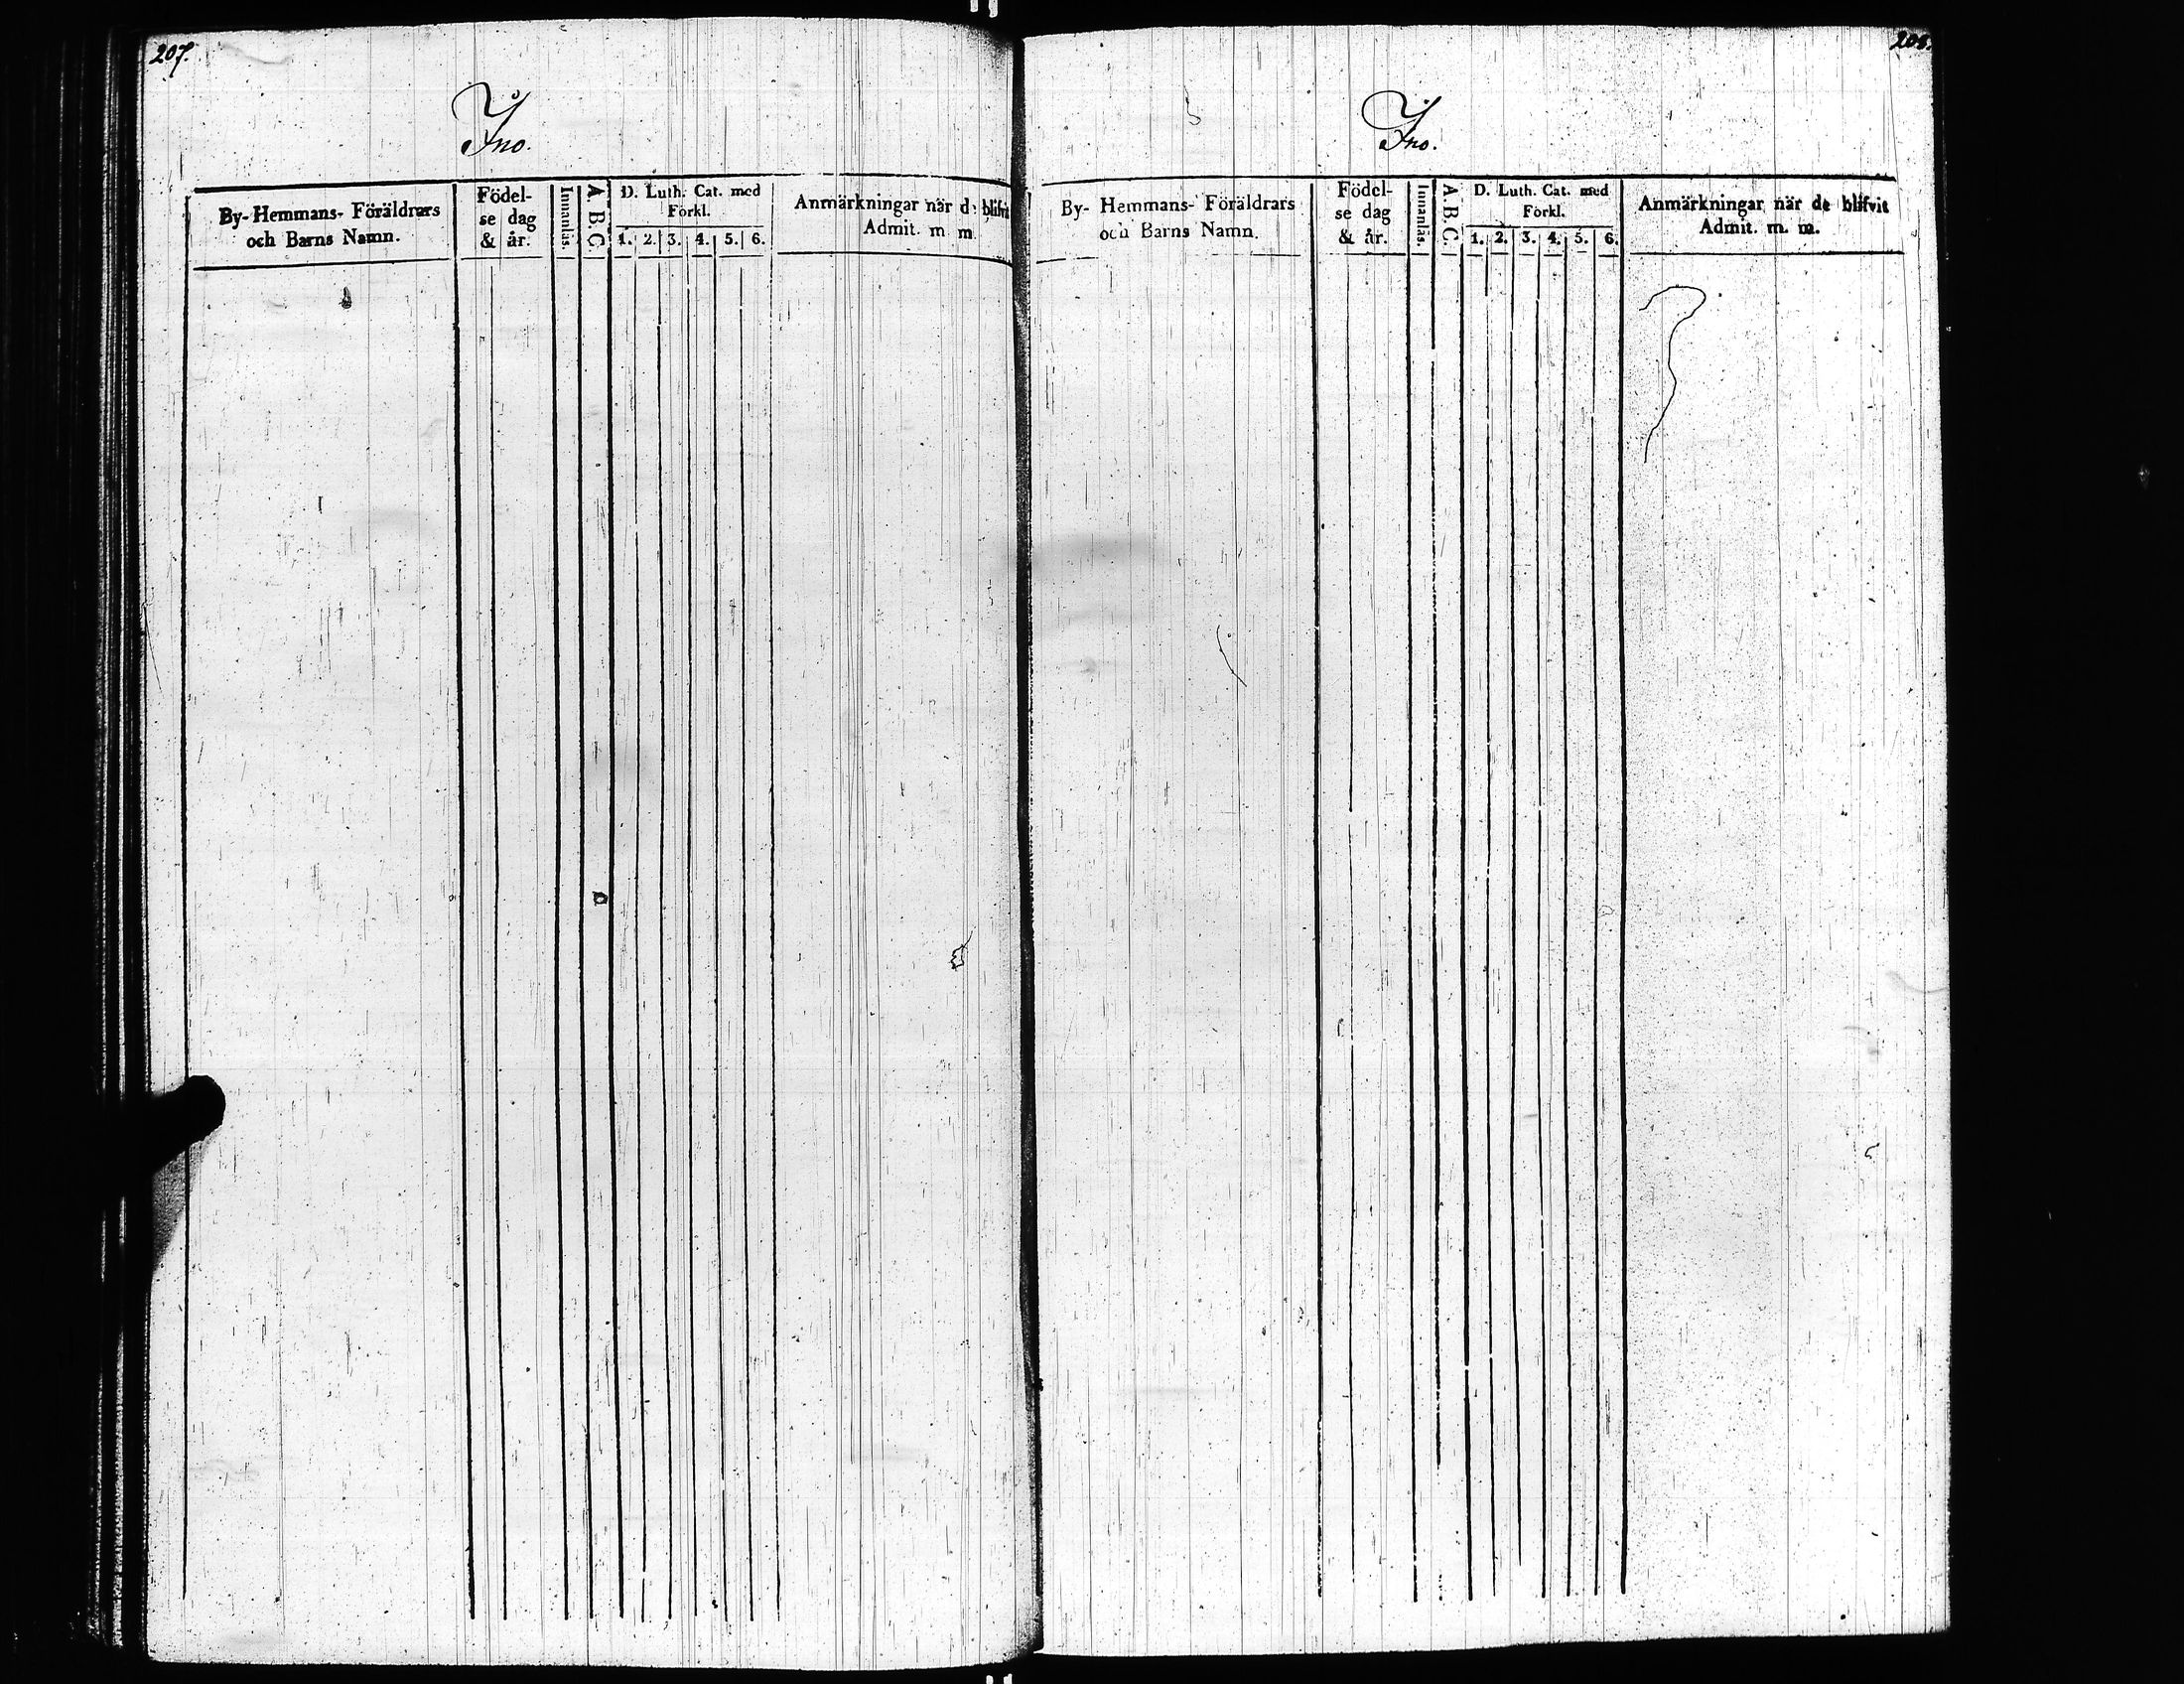 207.
Yno.
By- Hemmans- Föräldrars
och Barns Namn.
Födel-
se dag
& år.
Innanläs.
A. B. C.
D. Luth. Cat. med
Förkl.
1. 2. 3. 4. 5. 6.
Anmärkningar när de blifvit
Admit. m m.
208.
Yno.
By- Hemmans- Föräldrars
och Barns Namn.
Födel-
se dag
& år.
Innanläs.
A. B. C.
D. Luth. Cat. med
Förkl.
1. 2. 3. 4. 5. 6.
Anmärkningar när de blifvit
Admit. m. m.